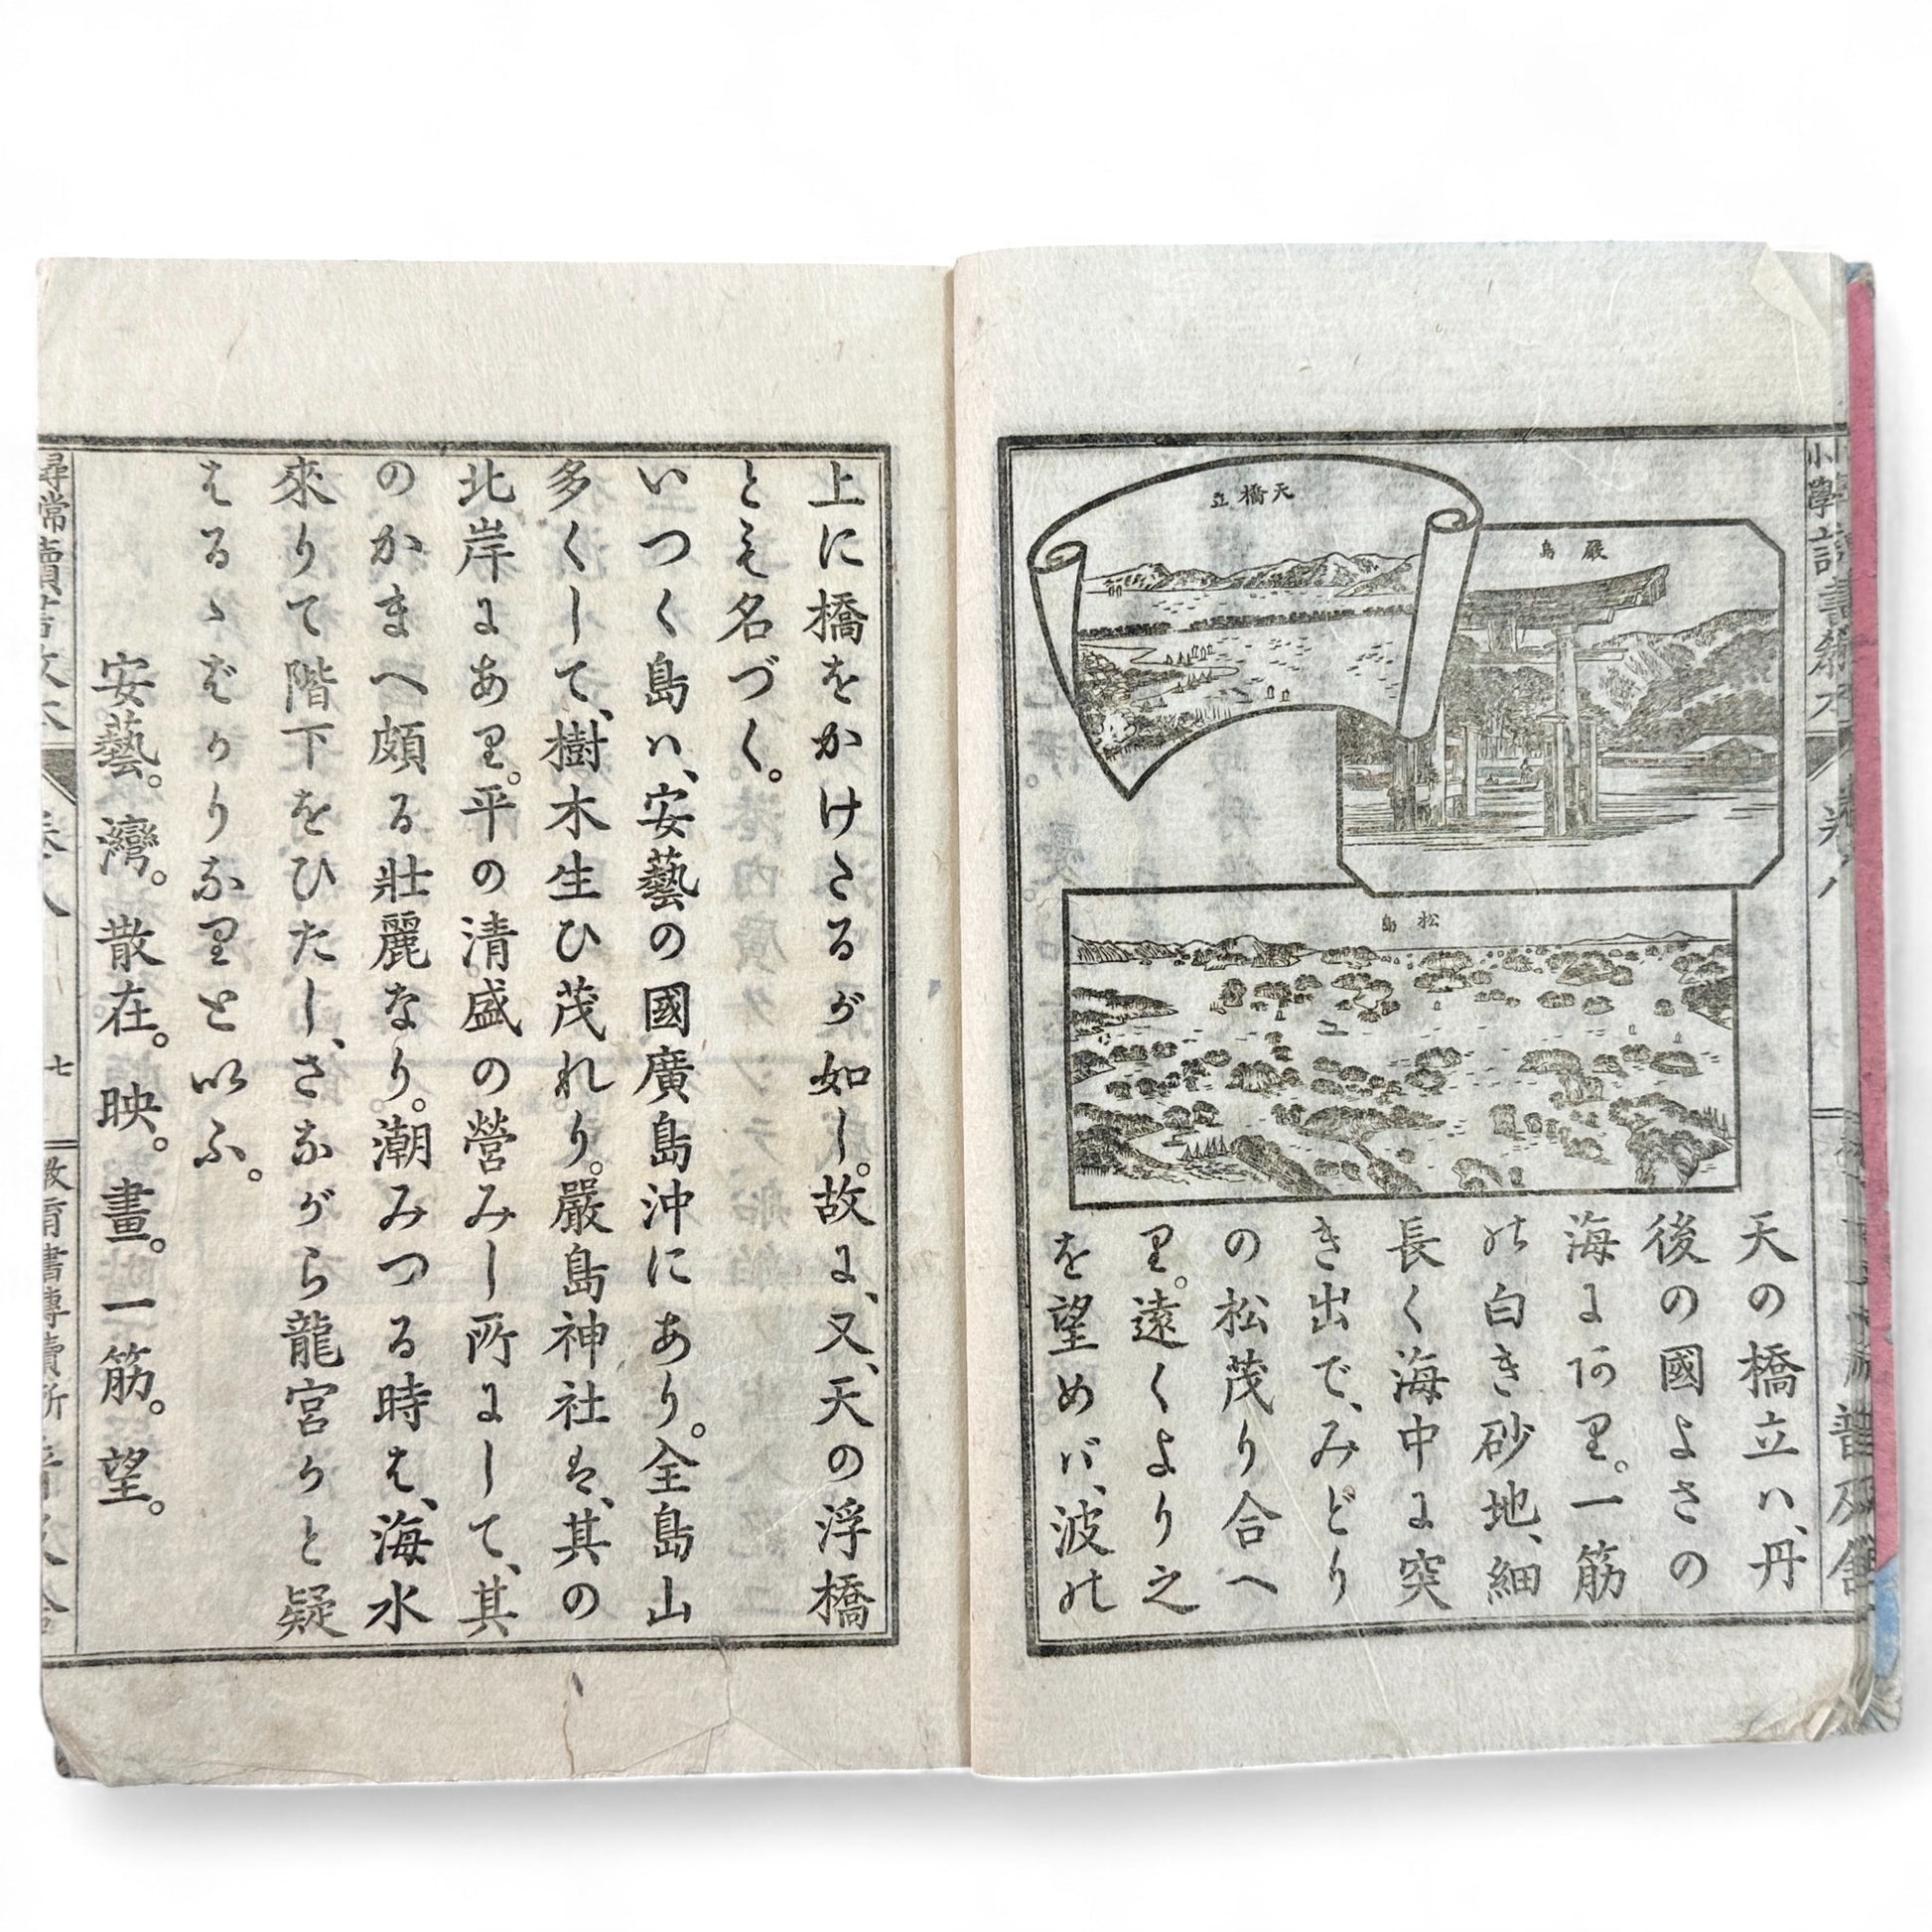 天橋立
嚴島
松島
天の橋立ハ、丹
後の國よさの
海にあり。一筋
の白き砂地、細
長く海中に突
き出で、みどり
の松茂り合へ
り。遠くより之
を望めバ、波の
上に橋をかけたるが如し。故に、又、天の浮橋
とも名づく。
いつく島ハ、安藝の國廣島沖にあり。全島山
多くして、樹木生ひ茂れり。嚴島神社は、其の
北岸にあり。平の清盛の營みし所にして、其
のかまへ頗る壯麗なり。潮みつる時は、海水
來りて階下をひたし、さながら龍宮かと疑
はるゝばかりなりといふ。
安藝。灣。散在。映。畫。一筋。望。
卷八
七